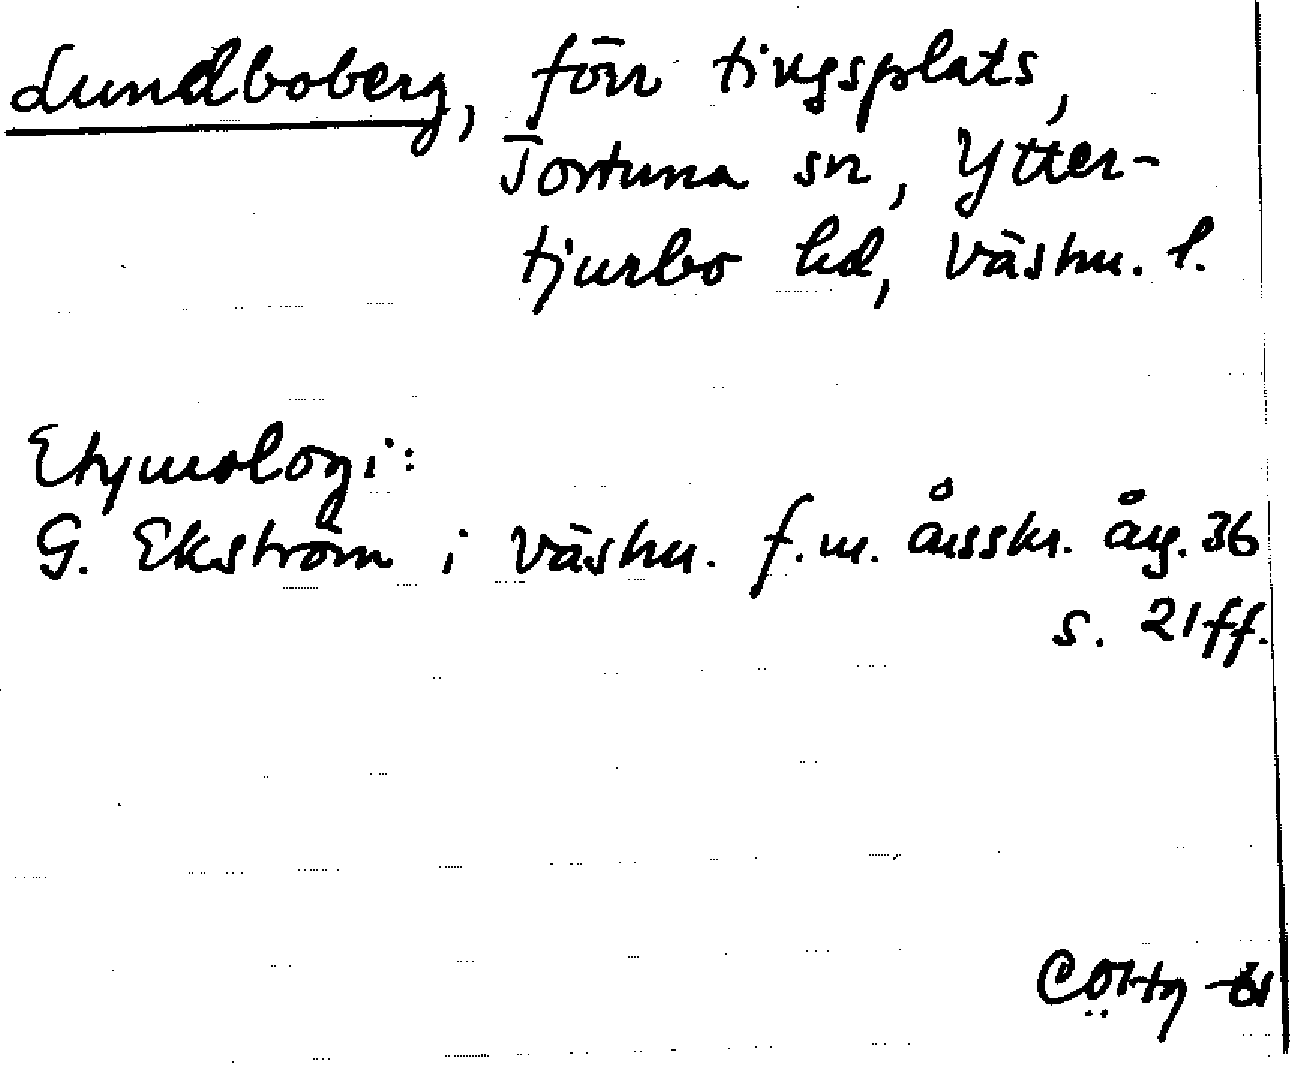 Lundboberg, förr tingsplats,
Tortuna sn, Ytter-
tjurbo hd, Västm. l.
Etymologi:
G. Ekström i Västm. f.m. årsskr. årg. 36
s. 21ff.